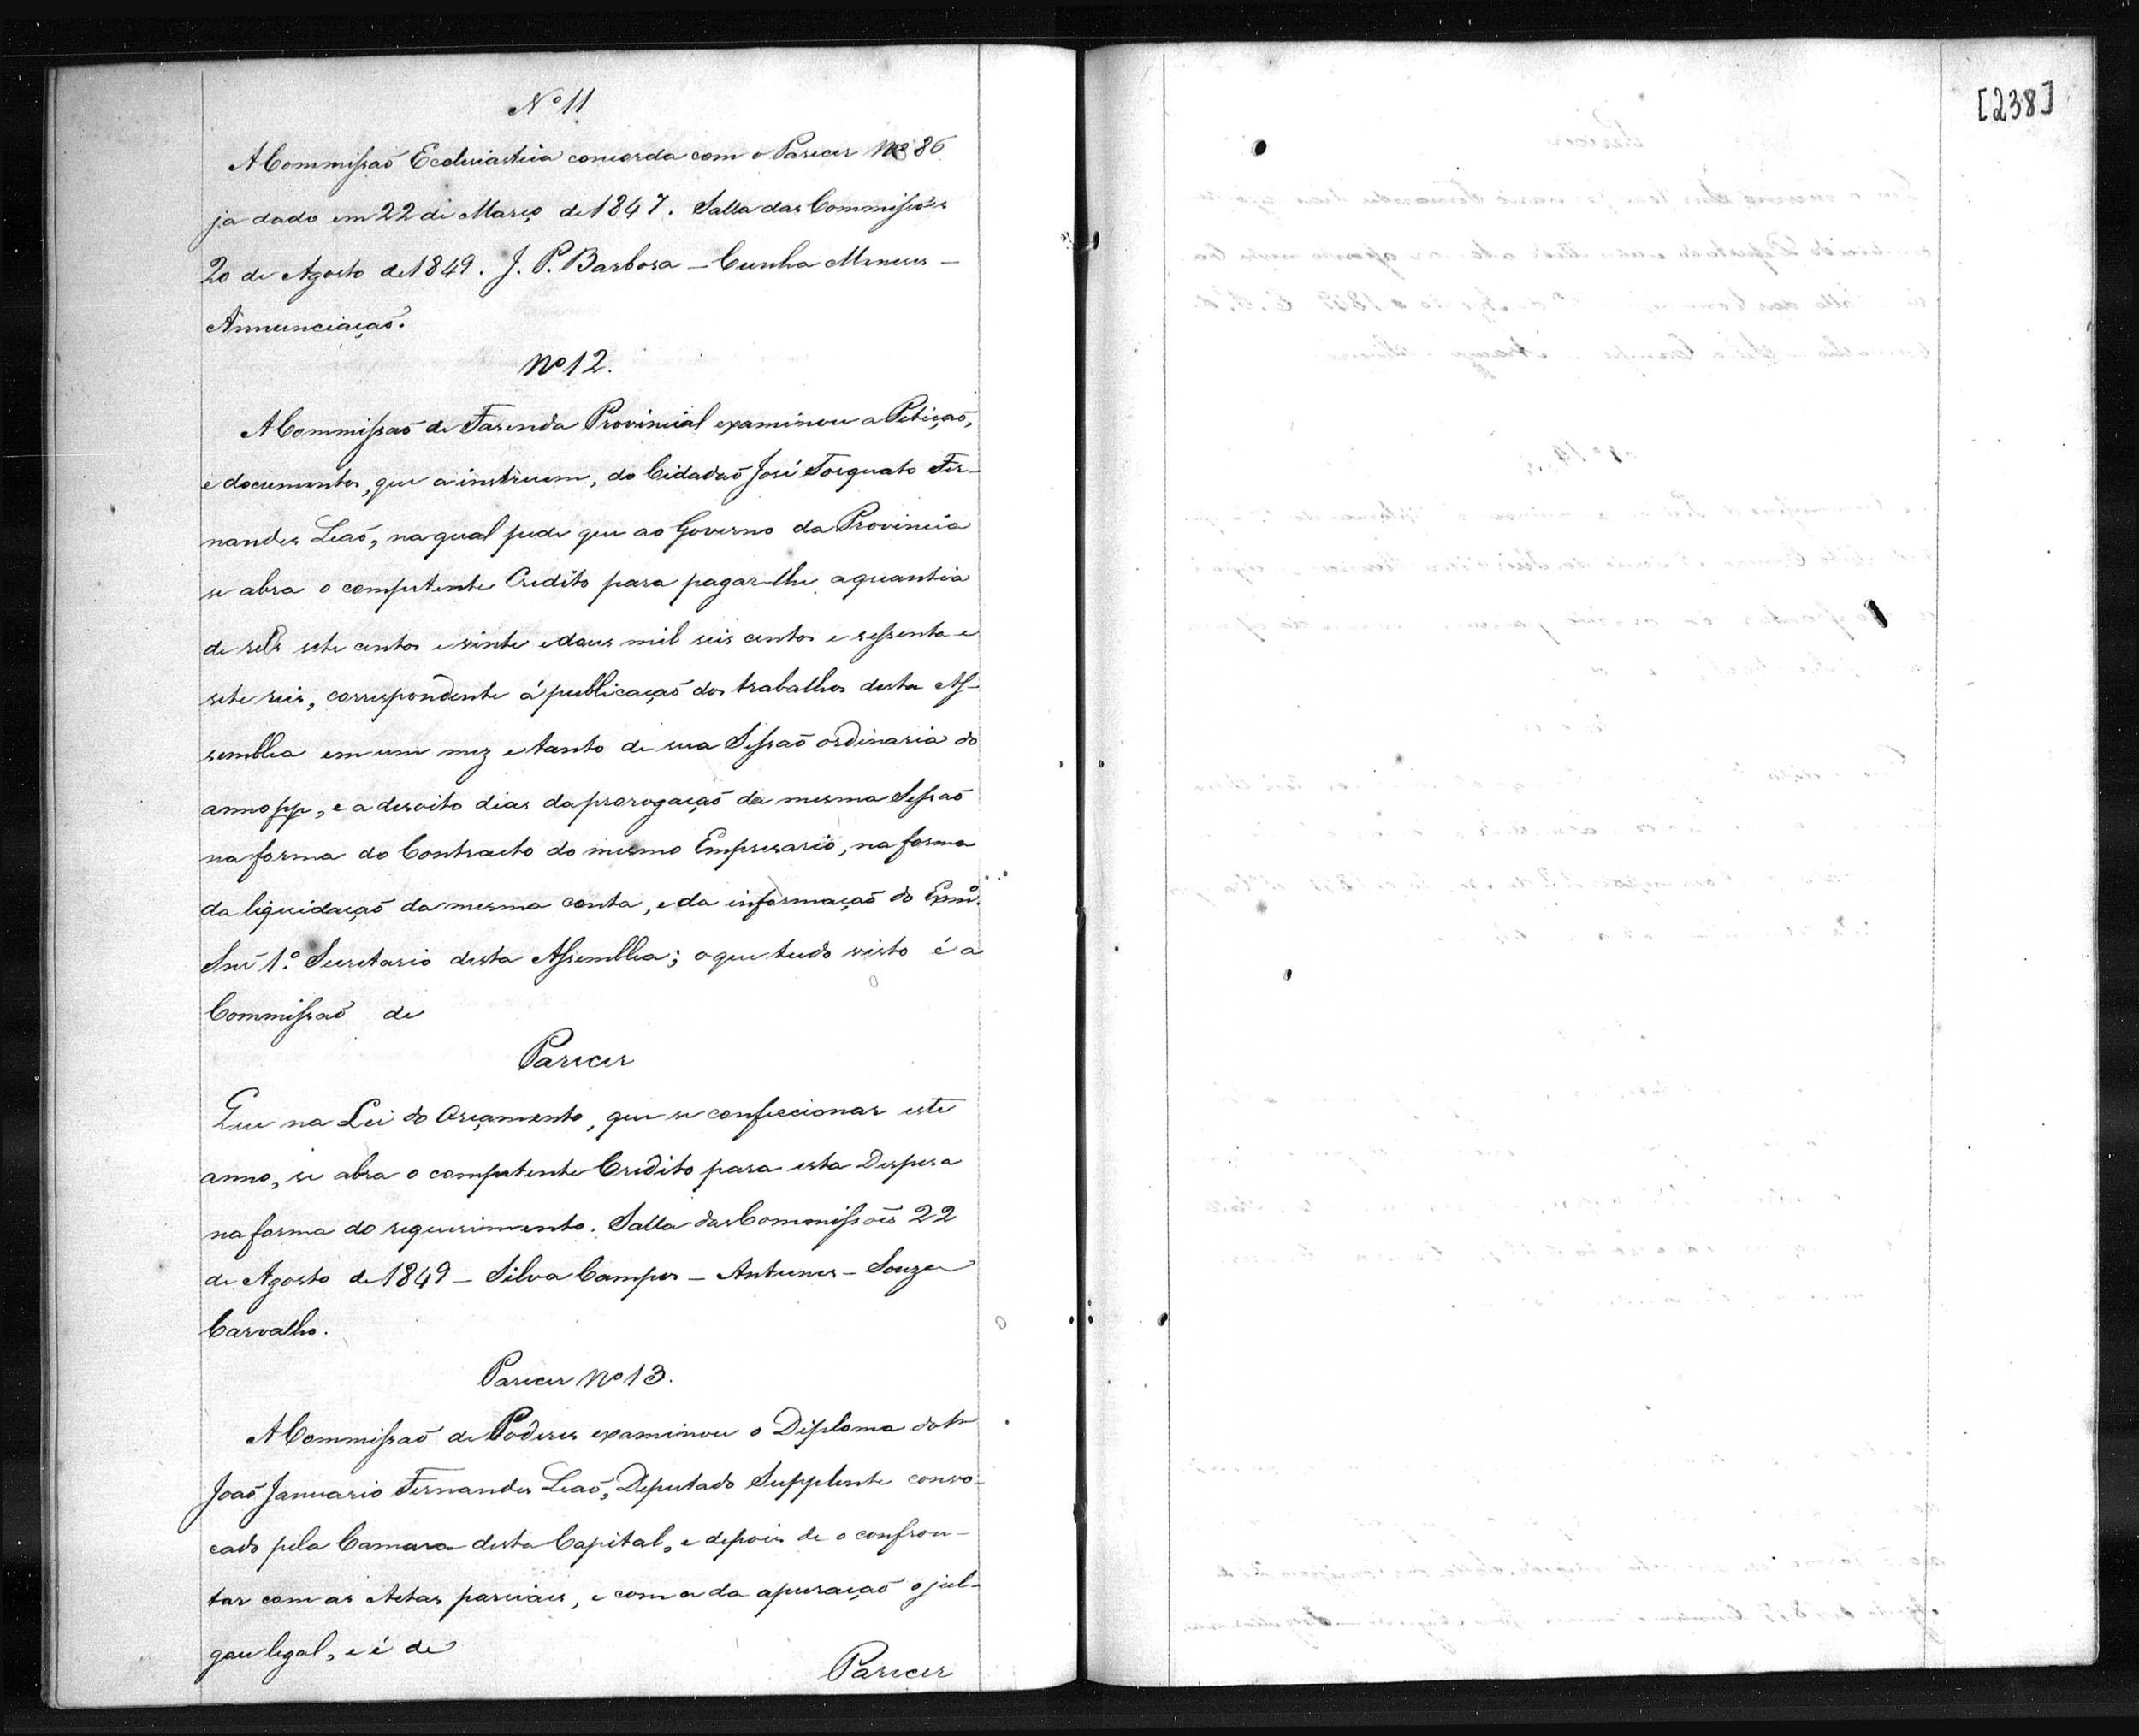 Nº 11
A Commissaõ Ecclesiastica concorda com o Parecer Nº 86
ja dado em 22 de Março de 1847. Salla das Commissões
20 de Agosto de 1849. J. P. Barbosa – Cunha Meneses –
Annunciaçaõ.
Nº 12.
A Commissaõ de Fasenda Provincial examinou a Petiçaõ,
e documentos, que a instruem, do Cidadaõ José Torquato Fer-
nandes Leaõ, na qual pede que ao Governo da Provincia
se abra o competente Credito para pagar-lhe a quantia
de sete centos e vinte e dous mil seis centos e sessenta e
sete reis, correspondente á publicaçaõ dos trabalhos desta As-
semblea em um mez e tanto de sua Sessaõ ordinaria do
anno pp, e a desoito dias da prorogaçaõ da mesma Sessaõ
na forma do Contracto do mesmo Empresario, na forma
da liquidaçaõ da mesma conta, e da informaçaõ do Exmº.
Snr 1.º Secretario desta Assemblea; o que tudo visto é a
Commissaõ de
Parecer
Que na Lei do Orçamento, que se confeccionar este
anno, se abra o competente Credito para esta Despesa
na forma do requerimento. Salla das Commissões 22
de Agosto de 1849 – Silva Campos – Antunes – Souza
Carvalho.
Parecer Nº 13.
A Commissaõ de Poderes examinou o Diploma do
Joaõ Januario Fernandes Leaõ, Deputado Supplente convo-
cado pela Camara desta Capital, e depois de o confron-
tar com as Actas parciaes, e com a da apuraçaõ o jul-
gou legal, e é de
Parecer
[238]